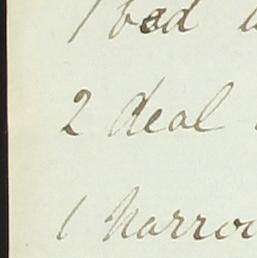 1 bed
2 deal
1 Narrow